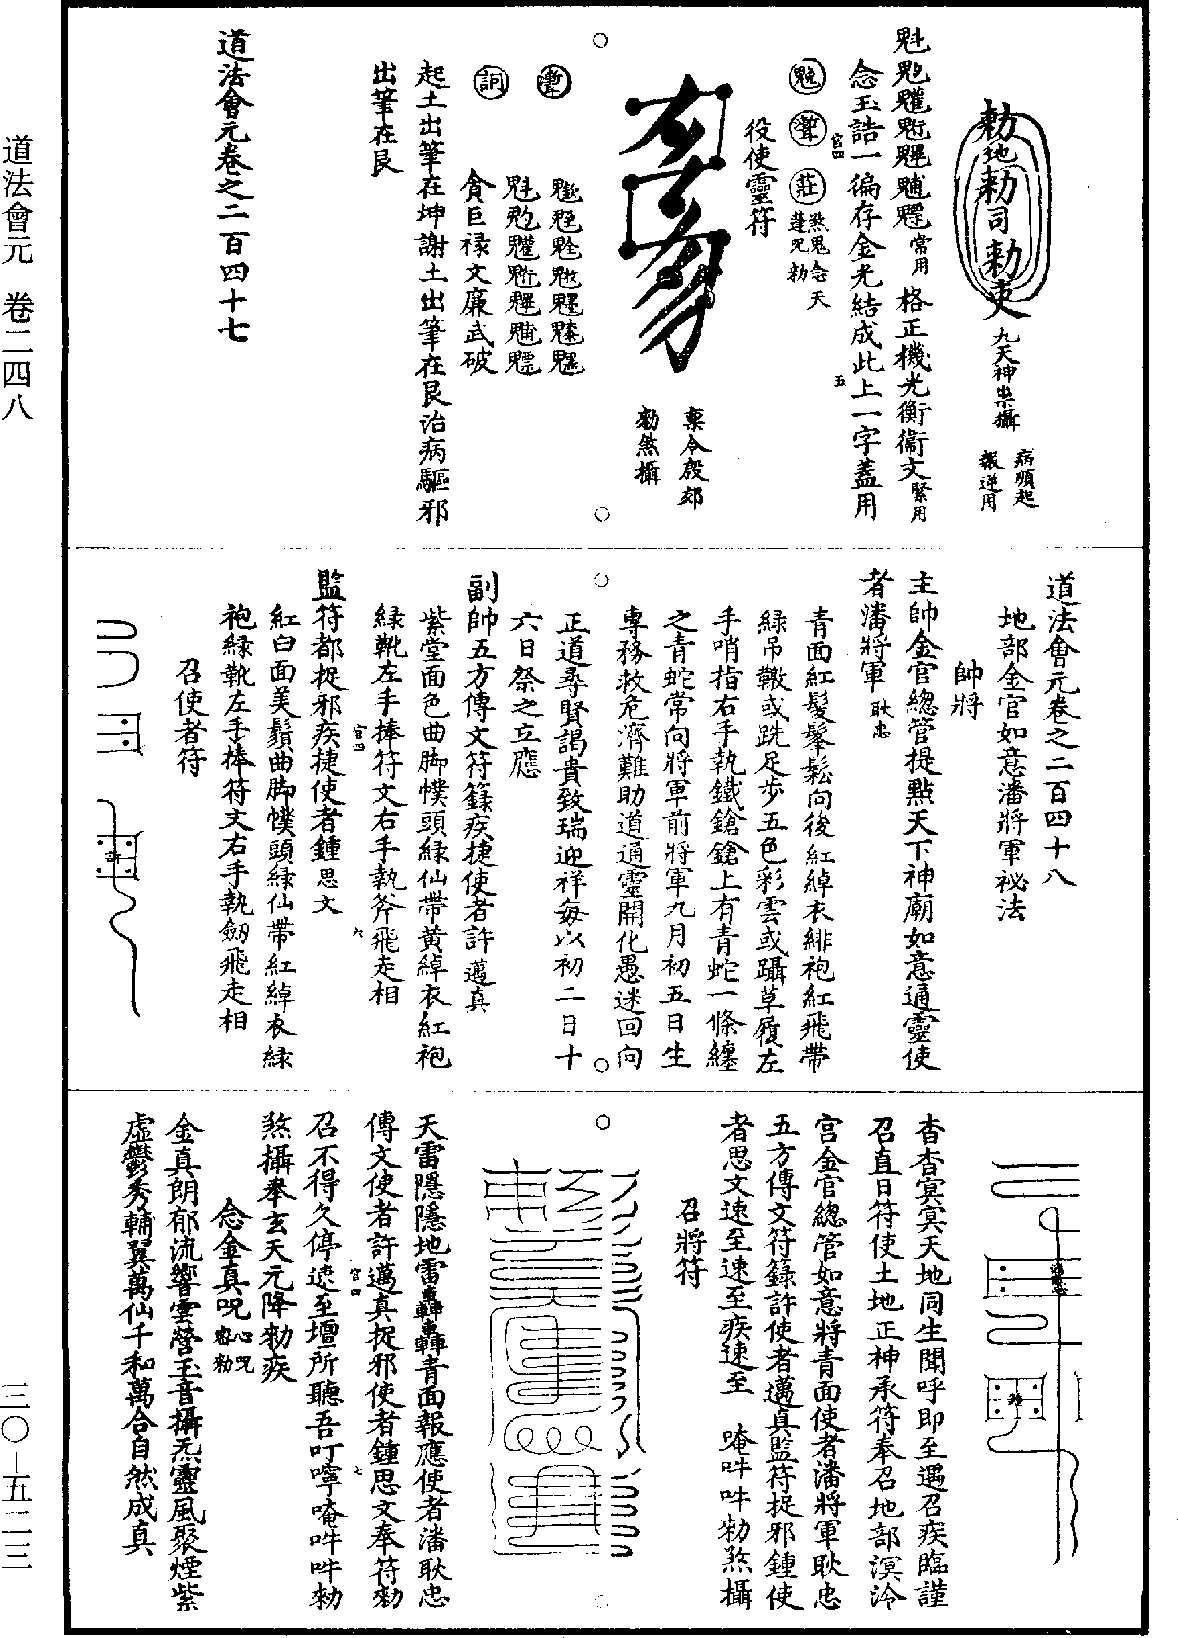 道法會元 卷二四八
三〇—五二三
勅地勅司勅吏
九天神祟攝
病順起
報逆用
魁𩲃䰢魓䰡䰣魒常用 格正機光衡衞文緊用
念玉誥一徧存金光結成此上一字蓋用
官四
五
莊
煞鬼念天
蓬咒勑
役使靈符
稟令殿郊
勑煞攝
訶
貪巨祿文廉武破
起土出筆在坤謝土出筆在艮治病驅邪
出筆在艮
道法會元卷之二百四十七
道法會元卷之二百四十八
地部金官如意潘將軍祕法
帥將
主帥金官總管提點天下神廟如意通靈使
者潘將軍耿忠
青面紅髮鬅鬆向後紅綽衣緋袍紅飛帶
綠吊𩎟或跣足步五色彩雲或躡草履左
手哨指右手執鐵鎗鎗上有青蛇一條纏
之青蛇常向將軍前將軍九月初五日生
專務救危濟難助道通靈開化愚迷回向
正道尋賢謁貴致瑞迎祥每以初二日十
六日祭之立應
副帥五方傳文符籙疾捷使者許邁真
紫堂面色曲脚幞頭綠仙帶黃綽衣紅袍
綠靴左手捧符文右手執斧飛走相
官四
六
監符都捉邪疾捷使者鍾思文
紅白面美鬚曲脚幞頭綠仙帶紅綽衣綠
袍綠靴左手捧符文右手執劒飛走相
召使者符
許
杳杳冥冥天地同生聞呼即至遇召疾臨謹
召直日符使土地正神承符奉召地部溟泠
宮金官總管如意將青面使者潘將軍耿忠
五方傳文符籙許使者邁真監符捉邪鍾使
者思文速至速至疾速至 唵吽吽勑煞攝
召將符
天雷隱隱地雷轟轟青面報應使者潘耿忠
傳文使者許邁真捉邪使者鍾思文奉符勑
官四
七
召不得久停速至壇所聽吾叮嚀唵吽吽勑
煞攝奉玄天元降勑疾
念金真咒心咒密勑
金真朗郁流響雲營玉音攝炁靈風聚煙紫
虛鬱秀輔翼萬仙千和萬合自然成真